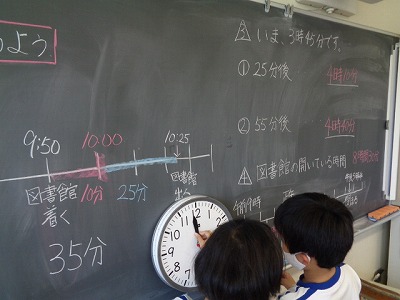 よう
9:50
10:00
10:25
図書館
着く
10分
25分
図書館
出る
35分
いま、3時45分です。
① 25分後
4時10分
② 55分後
4時40分
図書館の開いている時間
午前9時
12
11
10
9
8
7
6